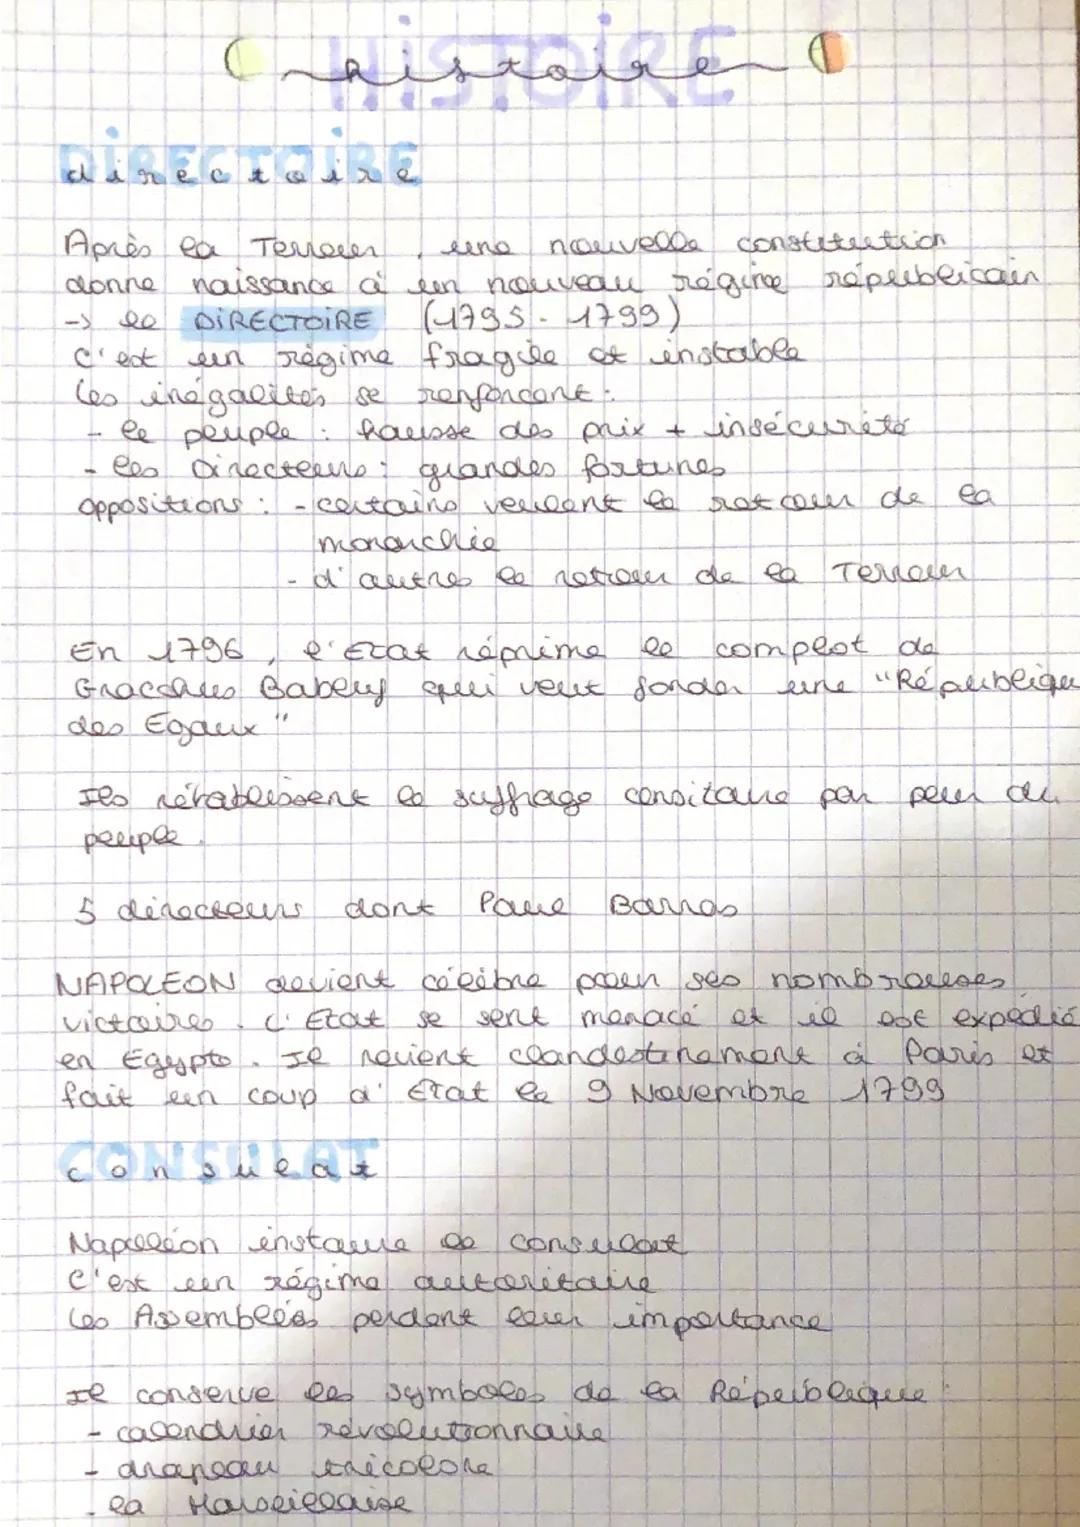 HISTOIRE
histoire
DIRECTOIRE
directoire
Après la Terreur, une nouvelle constitution
donne naissance à un nouveau régime républicain
-> le DIRECTOIRE (1795 - 1799)
C'est un régime fragile et instable
Les inégalités se renforcent :
- le peuple : hausse des prix + insécurité
- les Directeurs : grandes fortunes
oppositions : - certains veulent le retour de la
monarchie
- d'autres le retour de la Terreur
En 1796, l'Etat réprime le complot de
Gracchus Babeuf qui veut fonder une "République
des Egaux"
Ils rétablissent le suffrage censitaire par peur du
peuple.
5 directeurs dont Paul Barras
NAPOLEON devient célèbre pour ses nombreuses
victoires. L'Etat se sent menacé et il est expédié
en Egypte. Il revient clandestinement à Paris et
fait un coup d'Etat le 9 Novembre 1799
CONSULAT
consulat
Napoléon instaure le consulat
C'est un régime autoritaire
Les Assemblées perdent leur importance
Il conserve les symboles de la République :
- calendrier révolutionnaire
- drapeau tricolore
- la Marseillaise